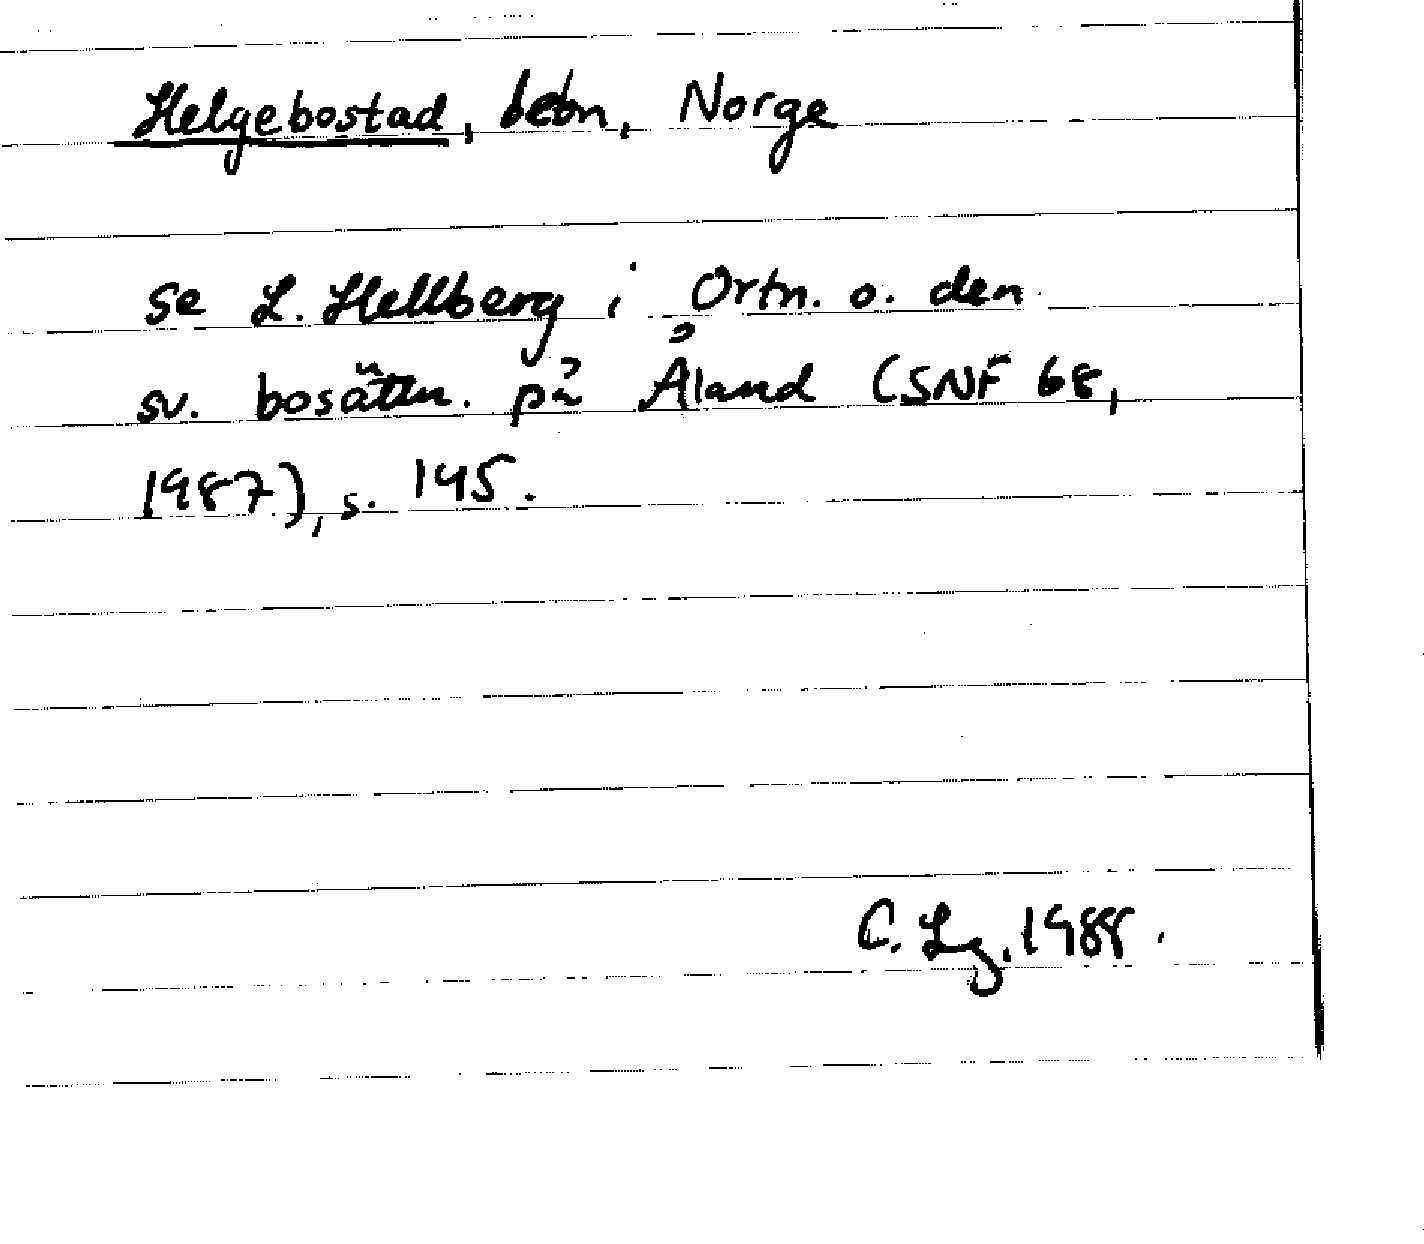 Helgebostad, bebn, Norge
se L. Hellberg i Ortn. o. den
sv. bosättn. på Åland (SNF 68,
1987), s. 145.
C. Lg. 1988.